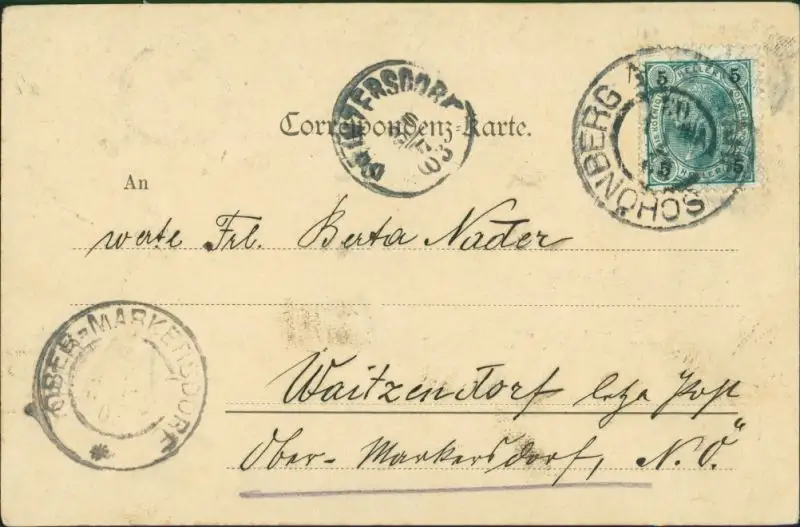 Correspondenz-Karte.
An
werte Frl. Berta Nader
Waitzendorf letzte Post
Ober-Markersdorf, N. Ö.
SCHÖNBERG
5 HELLER 5
5 HELLER 5
OBER-MARKERSDORF
03